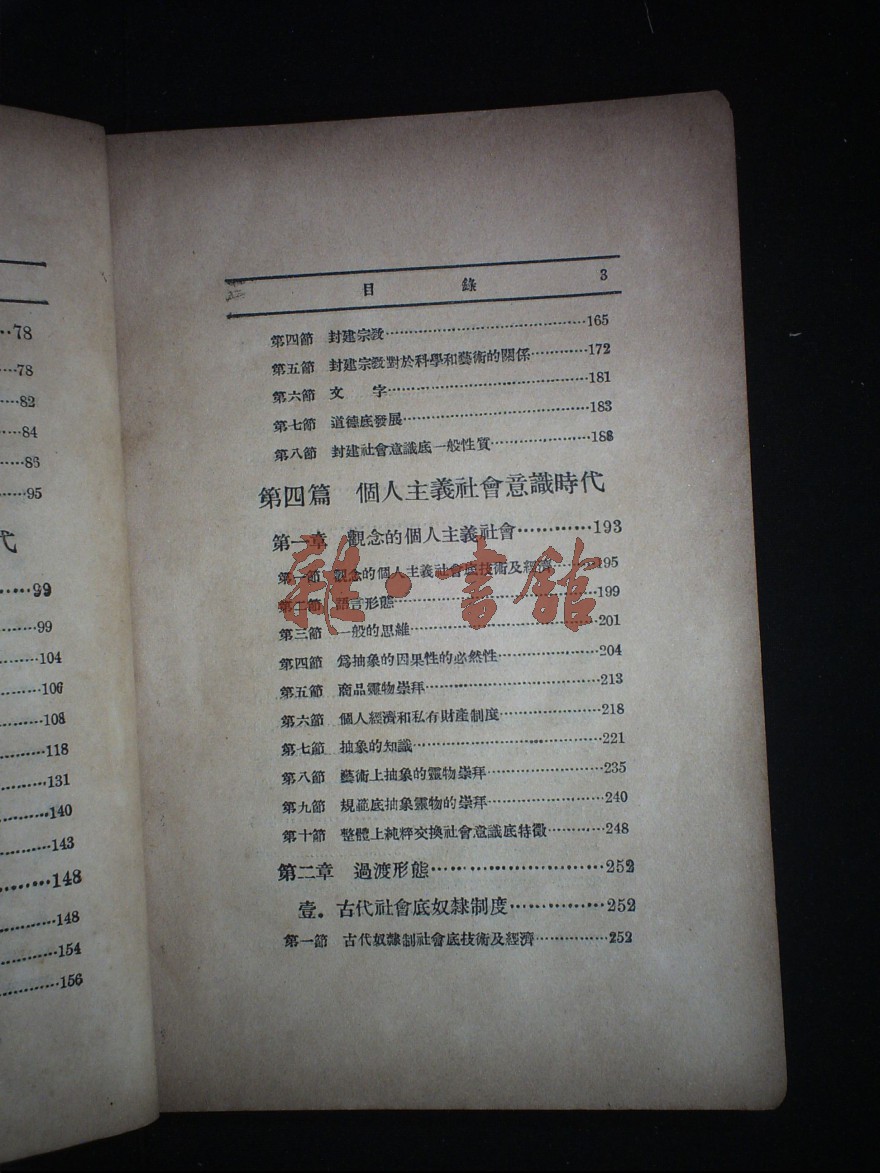 …78
…78
…82
…84
…86
…95
代
…99
…99
…104
…106
…108
…118
…131
…140
…143
…148
…148
…154
…156
目 錄 3
第四節 封建宗敎…165
第五節 封建宗敎對於科學和藝術的關係…172
第六節 文 字…181
第七節 道德底發展…183
第八節 封建社會意識底一般性質…188
第四篇 個人主義社會意識時代
第一章 觀念的個人主義社會…193
第一節 觀念的個人主義社會底技術及經濟…195
第二節 語言形態…199
第三節 一般的思維…201
第四節 爲抽象的因果性的必然性…204
第五節 商品靈物崇拜…213
第六節 個人經濟和私有財產制度…218
第七節 抽象的知識…221
第八節 藝術上抽象的靈物崇拜…235
第九節 規範底抽象靈物的崇拜…240
第十節 整體上純粹交換社會意識底特徵…248
第二章 過渡形態…252
壹. 古代社會底奴隸制度…252
第一節 古代奴隸制社會底技術及經濟…252
雜·書館